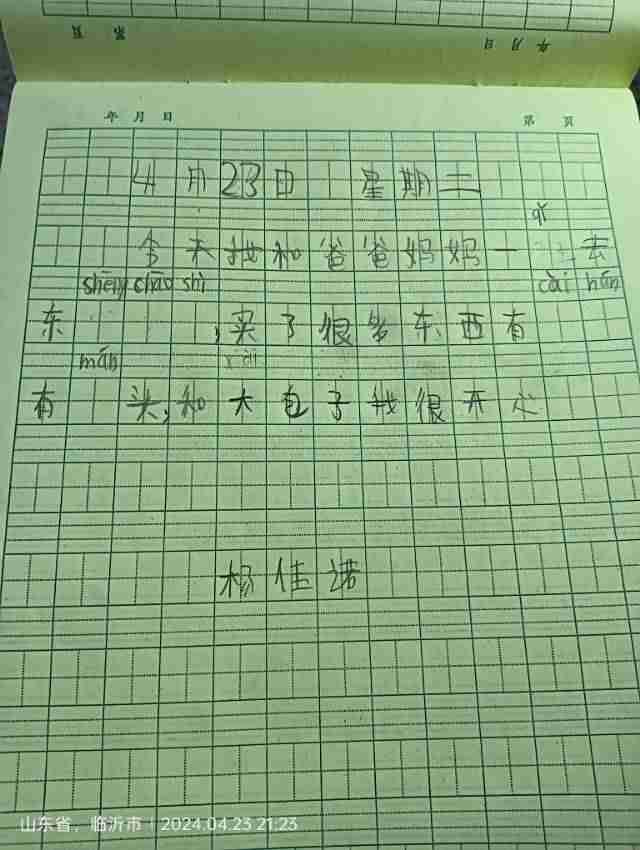 第 页
年 月 日
年 月 日
第 页
4月23日 星期二
qǐ
今天我和爸爸妈妈一 去
shēng chāo shì cài hán
东 ,买了很多东西有
mán
有 头,和大包子我很开心
杨佳诺
山东省,临沂市 | 2024.04.23 21:23